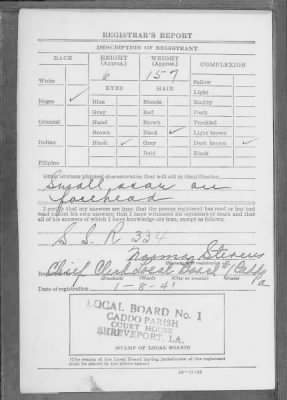 REGISTRAR'S REPORT
DESCRIPTION OF REGISTRANT
RACE HEIGHT (Approx.) WEIGHT (Approx.) COMPLEXION
6 157
White Sallow
EYES HAIR Light
Negro ✓ Blue Blonde Ruddy
Gray Red Dark
Oriental Hazel Brown Freckled
Brown Black ✓ Light brown
Indian Black ✓ Gray Dark brown ✓
Bald Black
Filipino
Other obvious physical characteristics that will aid in identification
Small scar on
forehead
I certify that my answers are true; that the person registered has read or has had
read to him his own answers; that I have witnessed his signature or mark and that
all of his answers of which I have knowledge are true, except as follows:
S. S. R 334
Chief Clerk Local Board #1 Caddo
(Precinct) (Ward)
Date of registration 1-8-41
LOCAL BOARD No. 1
CADDO PARISH
COURT HOUSE
SHREVEPORT, LA.
(STAMP OF LOCAL BOARD)
(The stamp of the Local Board having jurisdiction of the registrant
shall be placed in the above space)